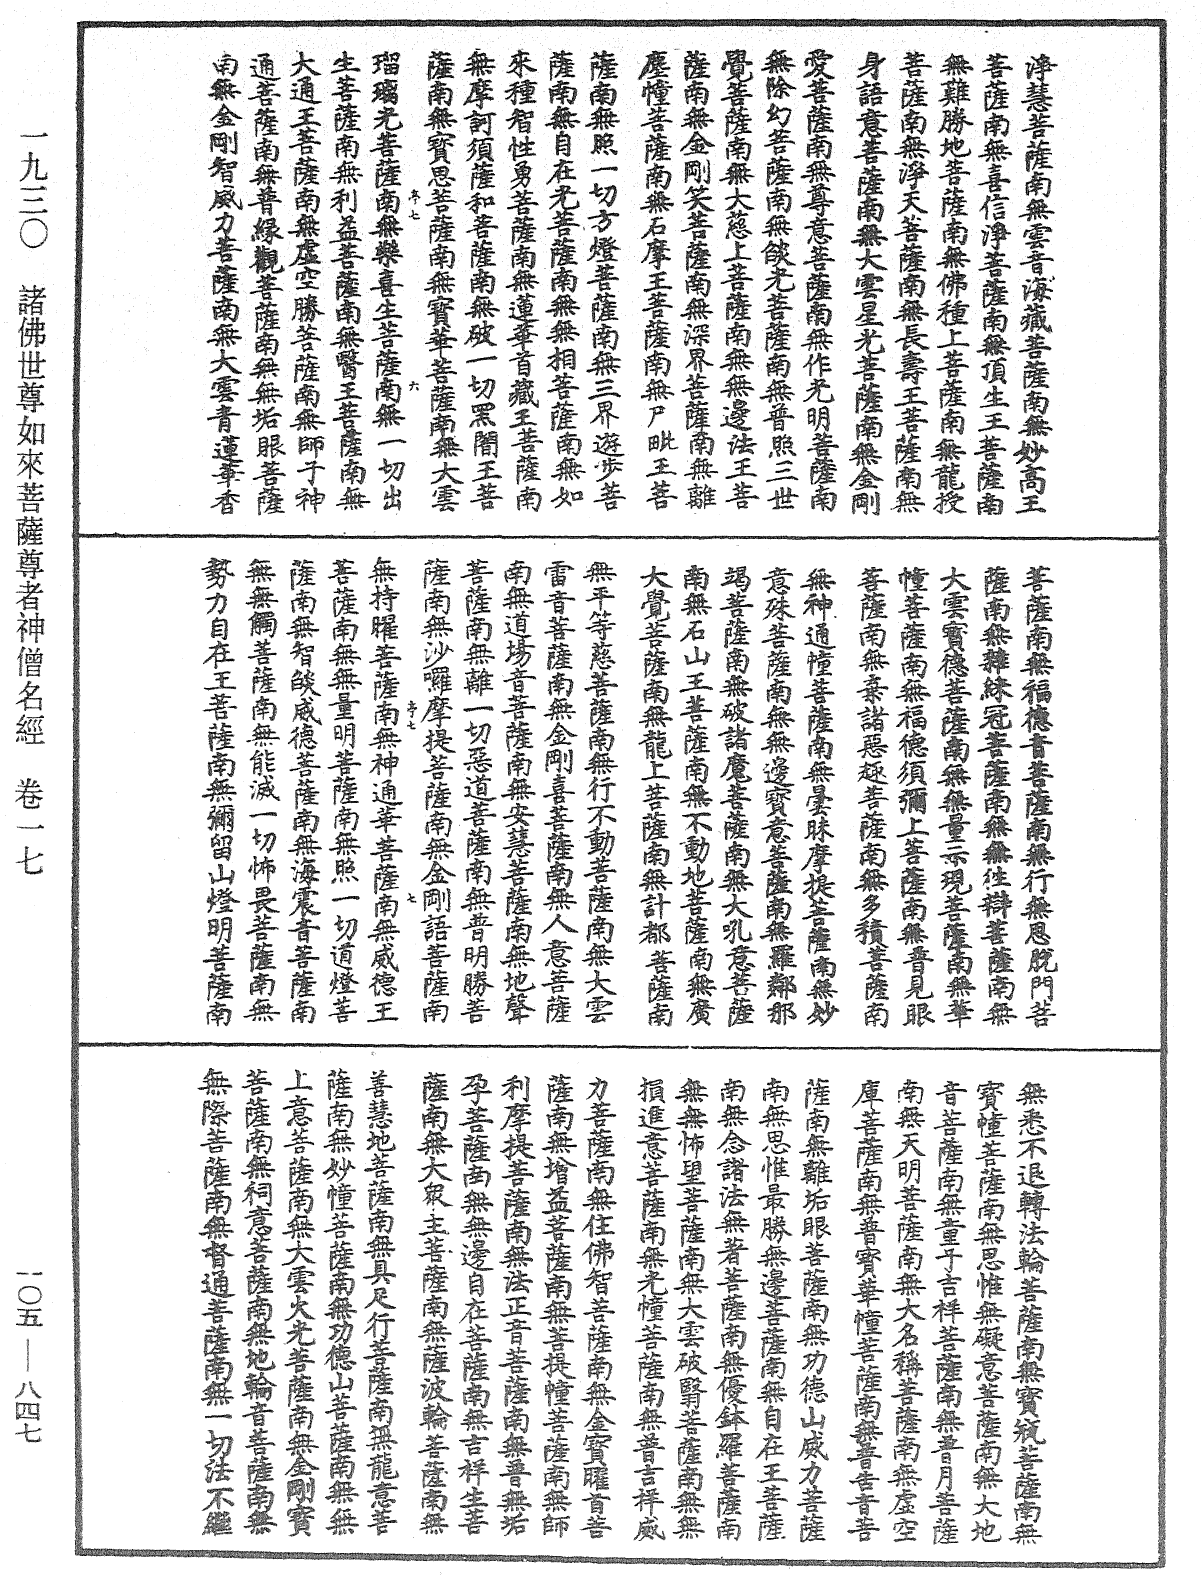 淨慧菩薩南無雲音海藏菩薩南無妙高王
菩薩南無喜信淨菩薩南無頂生王菩薩南
無難勝地菩薩南無佛種上菩薩南無龍授
菩薩南無淨天菩薩南無長壽王菩薩南無
身語意菩薩南無大雲星光菩薩南無金剛
愛菩薩南無尊意菩薩南無作光明菩薩南
無除幻菩薩南無燄光菩薩南無普照三世
覺菩薩南無大慈上菩薩南無無邊法王菩
薩南無金剛笑菩薩南無深界菩薩南無離
塵幢菩薩南無石摩王菩薩南無尸毗王菩
薩南無照一切方燈菩薩南無三界遊步菩
薩南無自在光菩薩南無無相菩薩南無如
來種智性勇菩薩南無蓮華首藏王菩薩南
無摩訶須薩和菩薩南無破一切黑闇王菩
薩南無寶思菩薩南無寶華菩薩南無大雲
亭七 六
瑠璃光菩薩南無樂喜生菩薩南無一切出
生菩薩南無利益菩薩南無醫王菩薩南無
大通王菩薩南無虛空勝菩薩南無師子神
通菩薩南無普緣觀菩薩南無無垢眼菩薩
南無金剛智威力菩薩南無大雲青蓮華香
菩薩南無福德音菩薩南無行無思脫門菩
薩南無雜綵冠菩薩南無無住辯菩薩南無
大雲寶德菩薩南無無量示現菩薩南無華
幢菩薩南無福德須彌上菩薩南無普見眼
菩薩南無棄諸惡趣菩薩南無多積菩薩南
無神通幢菩薩南無曇昧摩提菩薩南無妙
意殊菩薩南無無邊寶意菩薩南無羅鄰那
竭菩薩南無破諸魔菩薩南無大吼意菩薩
南無石山王菩薩南無不動地菩薩南無廣
大覺菩薩南無龍上菩薩南無計都菩薩南
無平等慈菩薩南無行不動菩薩南無大雲
雷音菩薩南無金剛喜菩薩南無人意菩薩
南無道場音菩薩南無安慧菩薩南無地聲
菩薩南無離一切惡道菩薩南無普明勝菩
薩南無沙囉摩提菩薩南無金剛語菩薩南
亭七 七
無持曜菩薩南無神通華菩薩南無威德王
菩薩南無無量明菩薩南無照一切道燈菩
薩南無智燄威德菩薩南無海震音菩薩南
無無觸菩薩南無能滅一切怖畏菩薩南無
勢力自在王菩薩南無彌留山燈明菩薩南
無悉不退轉法輪菩薩南無寶瓶菩薩南無
寶幢菩薩南無思惟無礙意菩薩南無大地
音菩薩南無童子吉祥菩薩南無普月菩薩
南無天明菩薩南無大名稱菩薩南無虛空
庫菩薩南無普寶華幢菩薩南無普告音菩
薩南無離垢眼菩薩南無功德山威力菩薩
南無思惟最勝無邊菩薩南無自在王菩薩
南無念諸法無著菩薩南無優鉢羅菩薩南
無無怖望菩薩南無大雲破翳菩薩南無無
損進意菩薩南無光幢菩薩南無普吉祥威
力菩薩南無住佛智菩薩南無金寶曜首菩
薩南無增益菩薩南無菩提幢菩薩南無師
利摩提菩薩南無法正音菩薩南無普無垢
孕菩薩南無無邊自在菩薩南無吉祥生菩
薩南無大眾主菩薩南無薩波輪菩薩南無
善慧地菩薩南無具足行菩薩南無龍意菩
薩南無妙幢菩薩南無功德山菩薩南無無
上意菩薩南無大雲火光菩薩南無金剛寶
菩薩南無祠意菩薩南無地輪音菩薩南無
無際菩薩南無督通菩薩南無一切法不繼
一九三〇 諸佛世尊如來菩薩尊者神僧名經 卷一七
一〇五—八四七